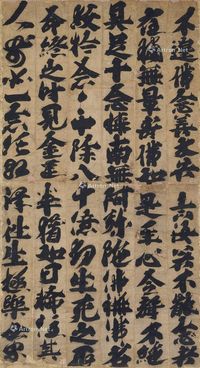 不遑念佛善友告言汝若不能念者
應稱無量壽佛如是至心令聲不絕
具足十念稱南無阿彌陀佛稱佛名
故於念念中除八十億劫生死之罪
命終之時見金蓮花猶如日輪住其
人前如一念頃即得往生極樂世界